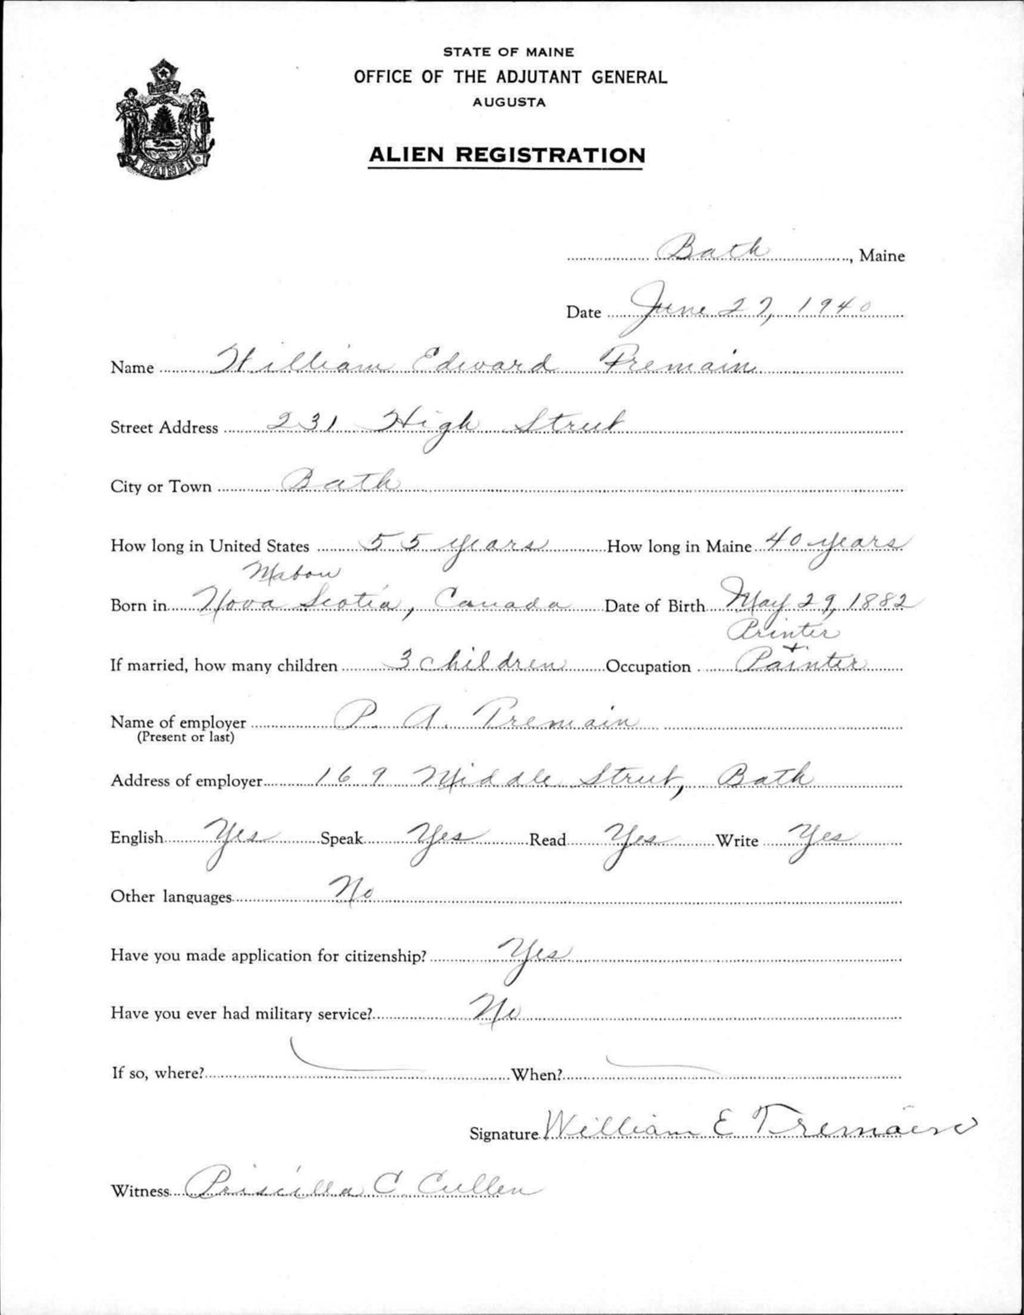 STATE OF MAINE
OFFICE OF THE ADJUTANT GENERAL
AUGUSTA
ALIEN REGISTRATION
MAINE
Bath, Maine
Date June 27, 1940
Name William Edward Tremain
Street Address 231 High Street
City or Town Bath
How long in United States 55 years How long in Maine 40 years
Mabou
Born in Nova Scotia, Canada Date of Birth May 29, 1882
Printer
+
If married, how many children 3 children Occupation Painter
Name of employer P. A. Tremain
(Present or last)
Address of employer 169 Middle Street, Bath
English Yes Speak Yes Read Yes Write Yes
Other languages No
Have you made application for citizenship? Yes
Have you ever had military service? No
If so, where? When?
Signature William E Tremain
Witness Priscilla C. Cullen